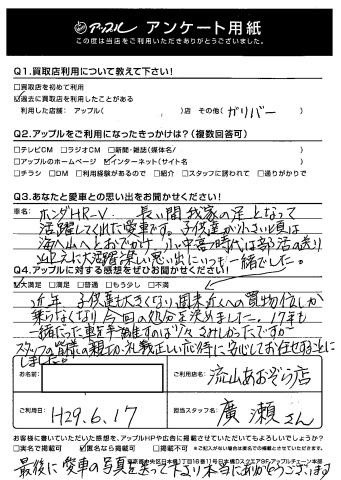 アップル アンケート用紙
この度は当店をご利用いただきありがとうございました。
Q1.買取店利用について教えて下さい!
□買取店を初めて利用
☑過去に買取店を利用したことがある
利用した店舗:アップル( )店 その他(ガリバー
Q2.アップルをご利用になったきっかけは?(複数回答可)
□テレビCM □ラジオCM □新聞・雑誌(媒体名/ )
□アップルのホームページ ☑インターネット(サイト名 )
□チラシ □DM □利用経験があるので □紹介 □スタッフに誘われて □通りがかりで
Q3.あなたと愛車との思い出をお聞かせください!
車名: ホンダHR-V. 長い間我家の足となって
活躍してくれた愛車です。子供達が小さい頃は
海へ山へとおでかけ 小中高時代は部活の送り
迎えに大活躍 楽しい思い出にいつも一緒でした。
Q4.アップルに対する感想をぜひお聞かせください!
☑大満足 □満足 □普通 □もう少し □不満
近年 子供達も大きくなり 週末近くへの買物位しか
乗らなくなり 今回の処分を決めました。17年も
一緒だった車を手離すのは少々さみしかったですが
スタッフの皆様の親切、礼義正しい応待に安心してお任せすることに
しました。
お名前:
ご利用店名: 流山あおぞら店
ご利用日: H29.6.17
担当スタッフ名: 廣瀬さん
お客様に書いていただいた感想を、アップルHPや広告に掲載させていただいてもよろしいでしょうか?
□実名で掲載可 ☑匿名なら掲載可 □掲載不可 ※ご記入がない場合は匿名での掲載とさせていただきます。
東京都中央区日本橋1丁目16番11号日本橋Dスクエア9F アップルチェーン本部
最後に愛車の写真を送って下さり本当にありがとうございます